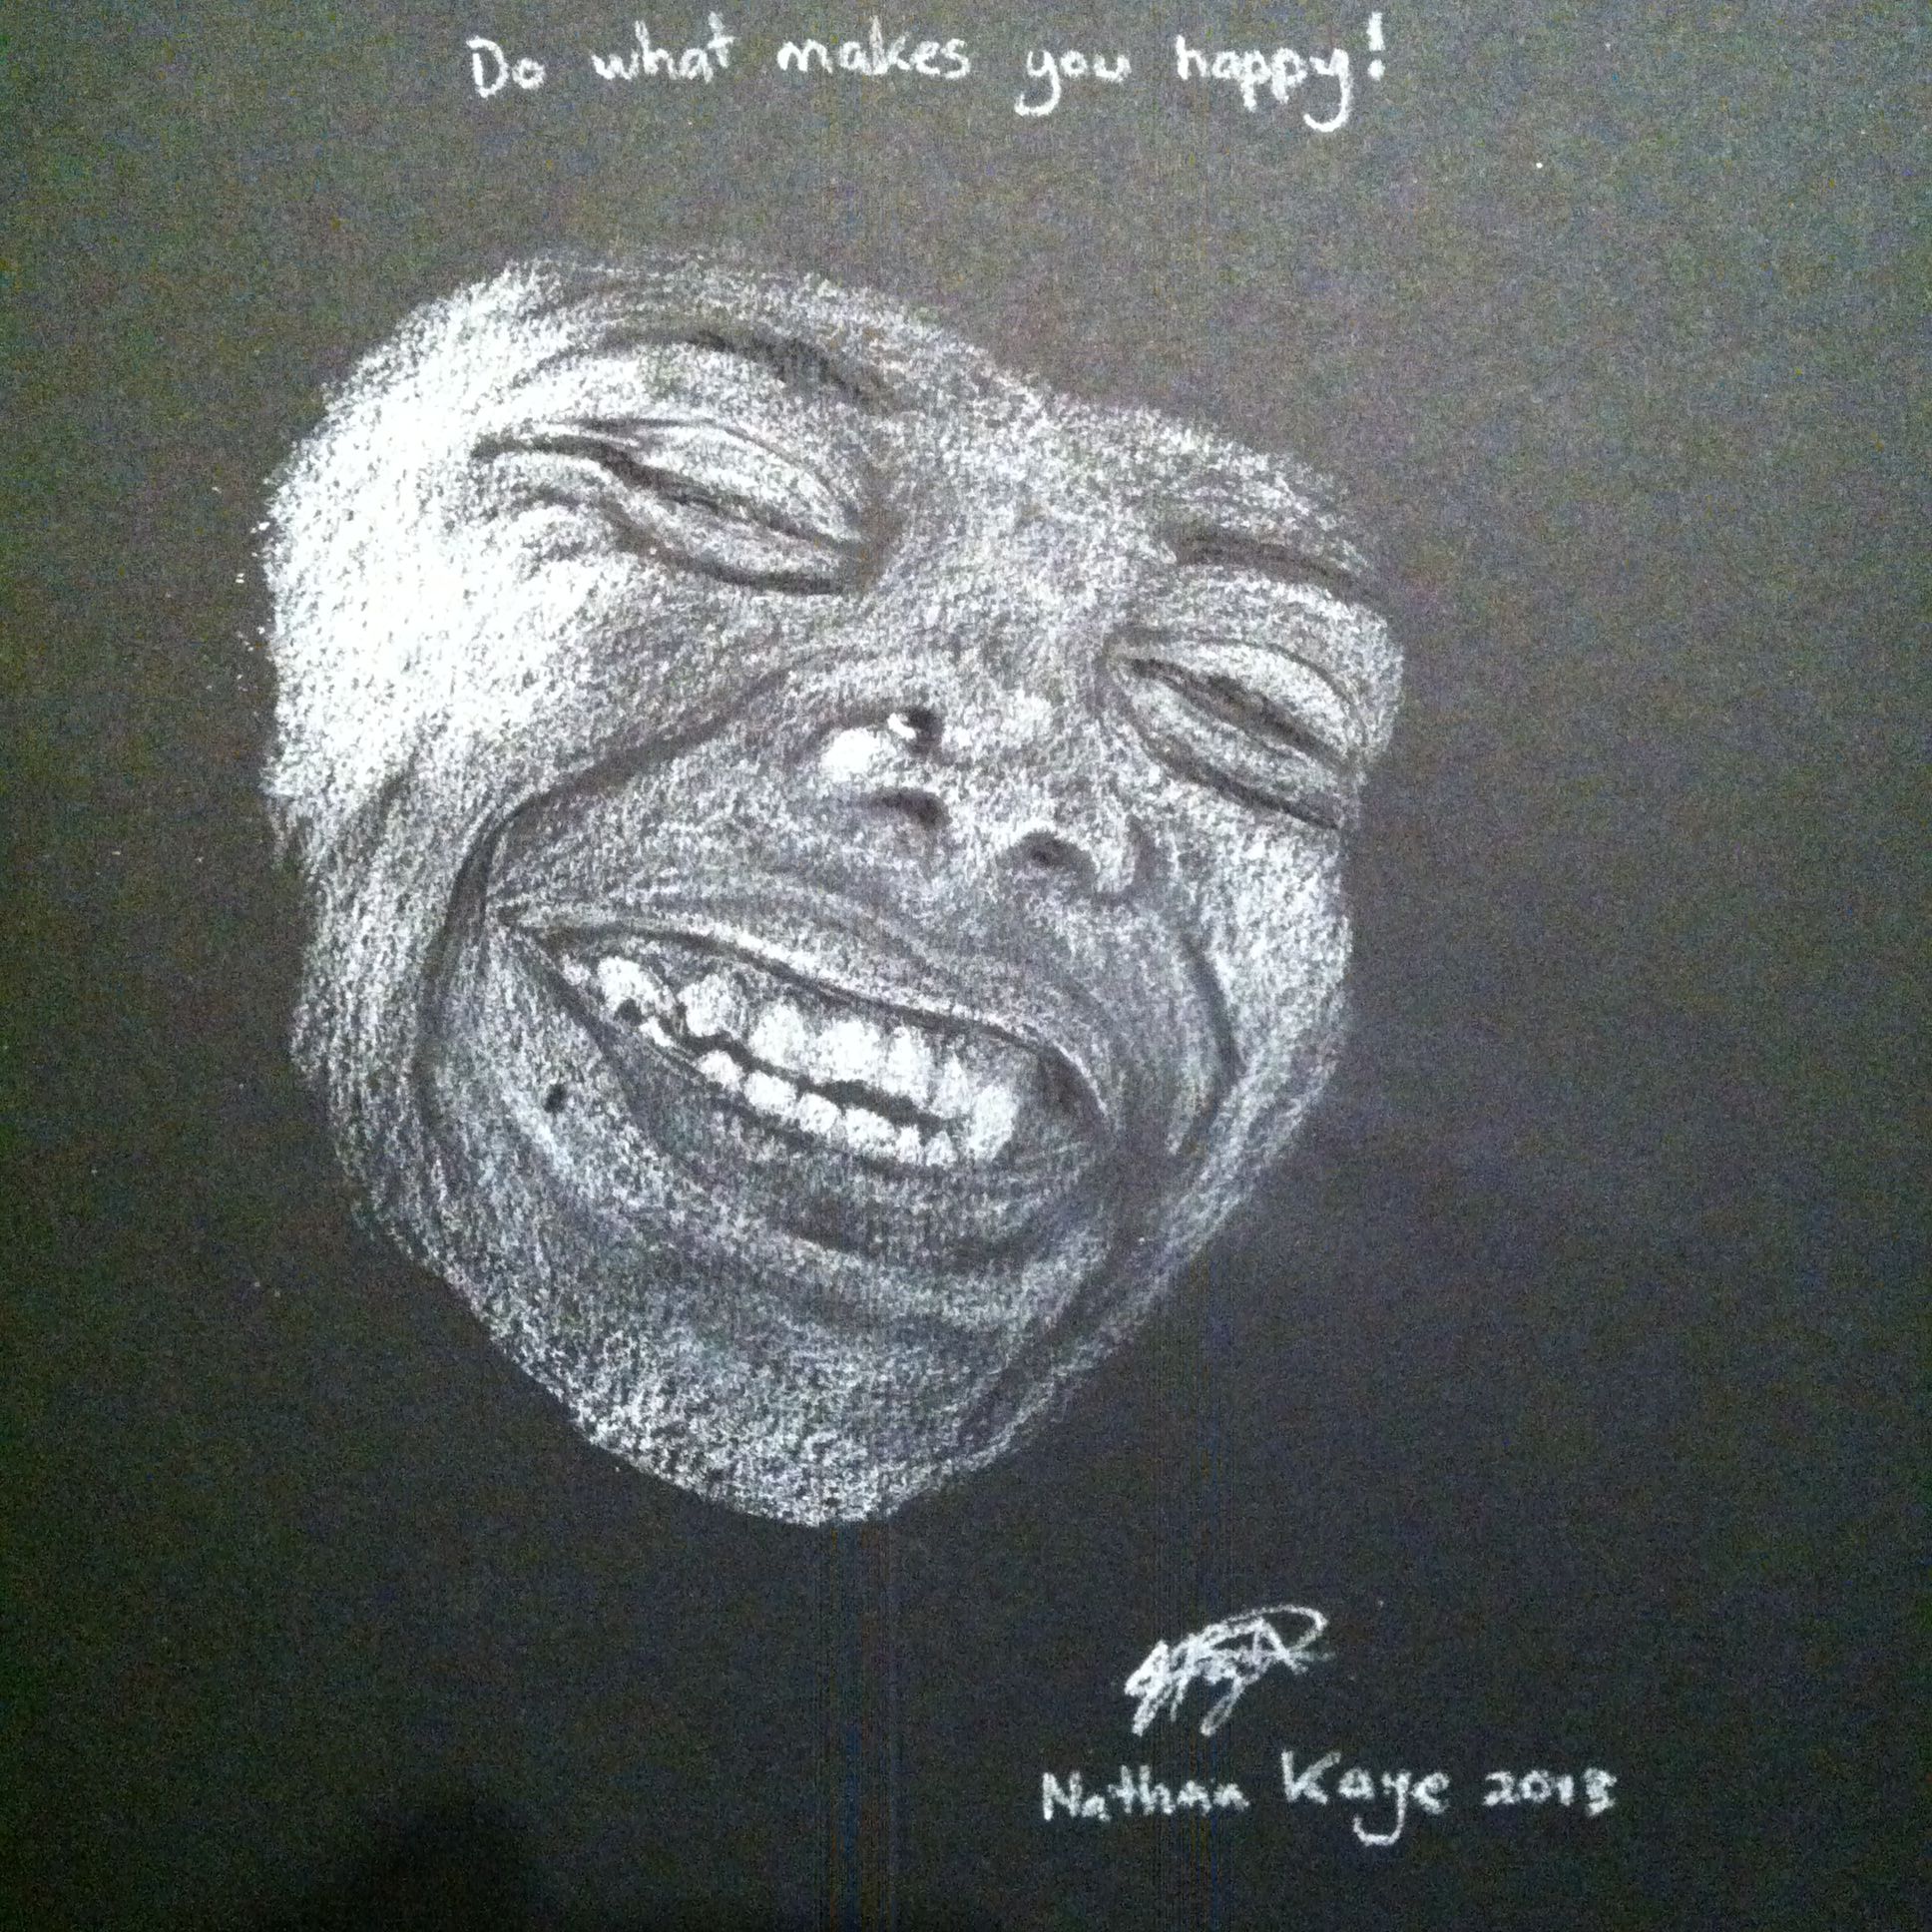 Do what makes you happy!
Nathan Kaye 2013